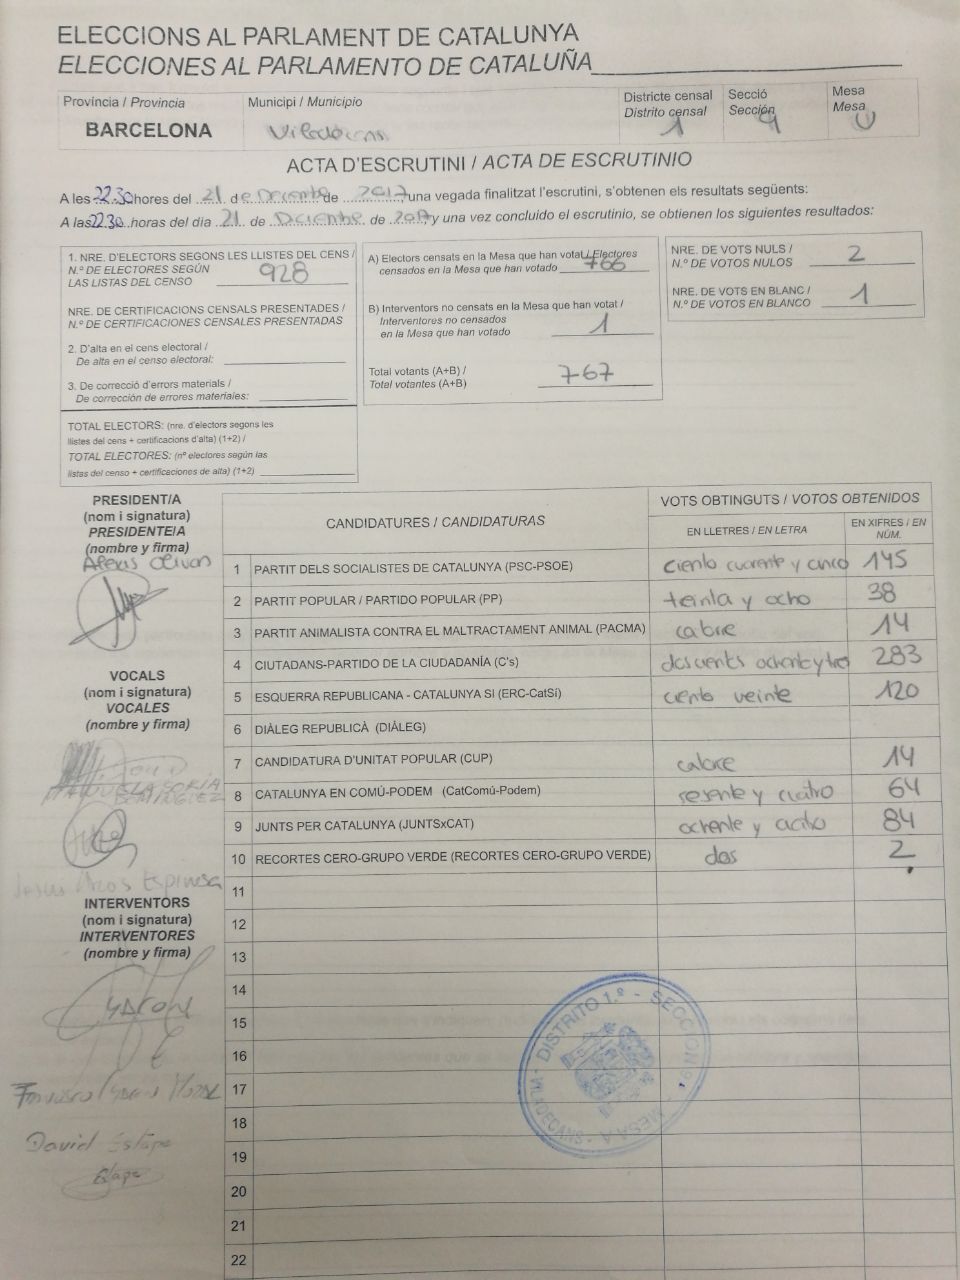 ELECCIONS AL PARLAMENT DE CATALUNYA
ELECCIONES AL PARLAMENTO DE CATALUÑA
Província / Provincia
BARCELONA
Municipi / Municipio
Viladecans
Districte censal
Distrito censal
1
Secció
Sección
9
Mesa
Mesa
U
ACTA D'ESCRUTINI / ACTA DE ESCRUTINIO
A les 22:30 hores del 21 de Diciembre de 2017, una vegada finalitzat l'escrutini, s'obtenen els resultats següents:
A las 22:30 horas del día 21 de Diciembre de 2017, y una vez concluido el escrutinio, se obtienen los siguientes resultados:
1. NRE. D'ELECTORS SEGONS LES LLISTES DEL CENS /
N.º DE ELECTORES SEGÚN
LAS LISTAS DEL CENSO 928
NRE. DE CERTIFICACIONS CENSALS PRESENTADES /
N.º DE CERTIFICACIONES CENSALES PRESENTADAS
2. D'alta en el cens electoral /
De alta en el censo electoral:
3. De correcció d'errors materials /
De corrección de errores materiales:
TOTAL ELECTORS: (nre. d'electors segons les
llistes del cens + certificacions d'alta) (1+2) /
TOTAL ELECTORES: (nº electores según las
listas del censo + certificaciones de alta) (1+2)
A) Electors censats en la Mesa que han votat / Electores
censados en la Mesa que han votado 766
B) Interventors no censats en la Mesa que han votat /
Interventores no censados
en la Mesa que han votado 1
Total votants (A+B) /
Total votantes (A+B) 767
NRE. DE VOTS NULS /
N.º DE VOTOS NULOS 2
NRE. DE VOTS EN BLANC /
N.º DE VOTOS EN BLANCO 1
PRESIDENT/A
(nom i signatura)
PRESIDENTE/A
(nombre y firma)
Alexis Olivan
VOCALS
(nom i signatura)
VOCALES
(nombre y firma)
MANUELA SORIA
DOMINGUEZ
Jesús Arcos Espinosa
INTERVENTORS
(nom i signatura)
INTERVENTORES
(nombre y firma)
David Estape
CANDIDATURES / CANDIDATURAS
VOTS OBTINGUTS / VOTOS OBTENIDOS
EN LLETRES / EN LETRA
EN XIFRES / EN NÚM.
1 PARTIT DELS SOCIALISTES DE CATALUNYA (PSC-PSOE) ciento cuarenta y cinco 145
2 PARTIT POPULAR / PARTIDO POPULAR (PP) treinta y ocho 38
3 PARTIT ANIMALISTA CONTRA EL MALTRACTAMENT ANIMAL (PACMA) catorce 14
4 CIUTADANS-PARTIDO DE LA CIUDADANÍA (C's) doscientos ochenta y tres 283
5 ESQUERRA REPUBLICANA - CATALUNYA SI (ERC-CatSí) ciento veinte 120
6 DIÀLEG REPUBLICÀ (DIÀLEG)
7 CANDIDATURA D'UNITAT POPULAR (CUP) catorce 14
8 CATALUNYA EN COMÚ-PODEM (CatComú-Podem) sesenta y cuatro 64
9 JUNTS PER CATALUNYA (JUNTSxCAT) ochenta y cuatro 84
10 RECORTES CERO-GRUPO VERDE (RECORTES CERO-GRUPO VERDE) dos 2
11
12
13
14
15
16
17
18
19
20
21
22
DISTRITO 1.º - SECCIÓN 9. - MESA A - VILADECANS